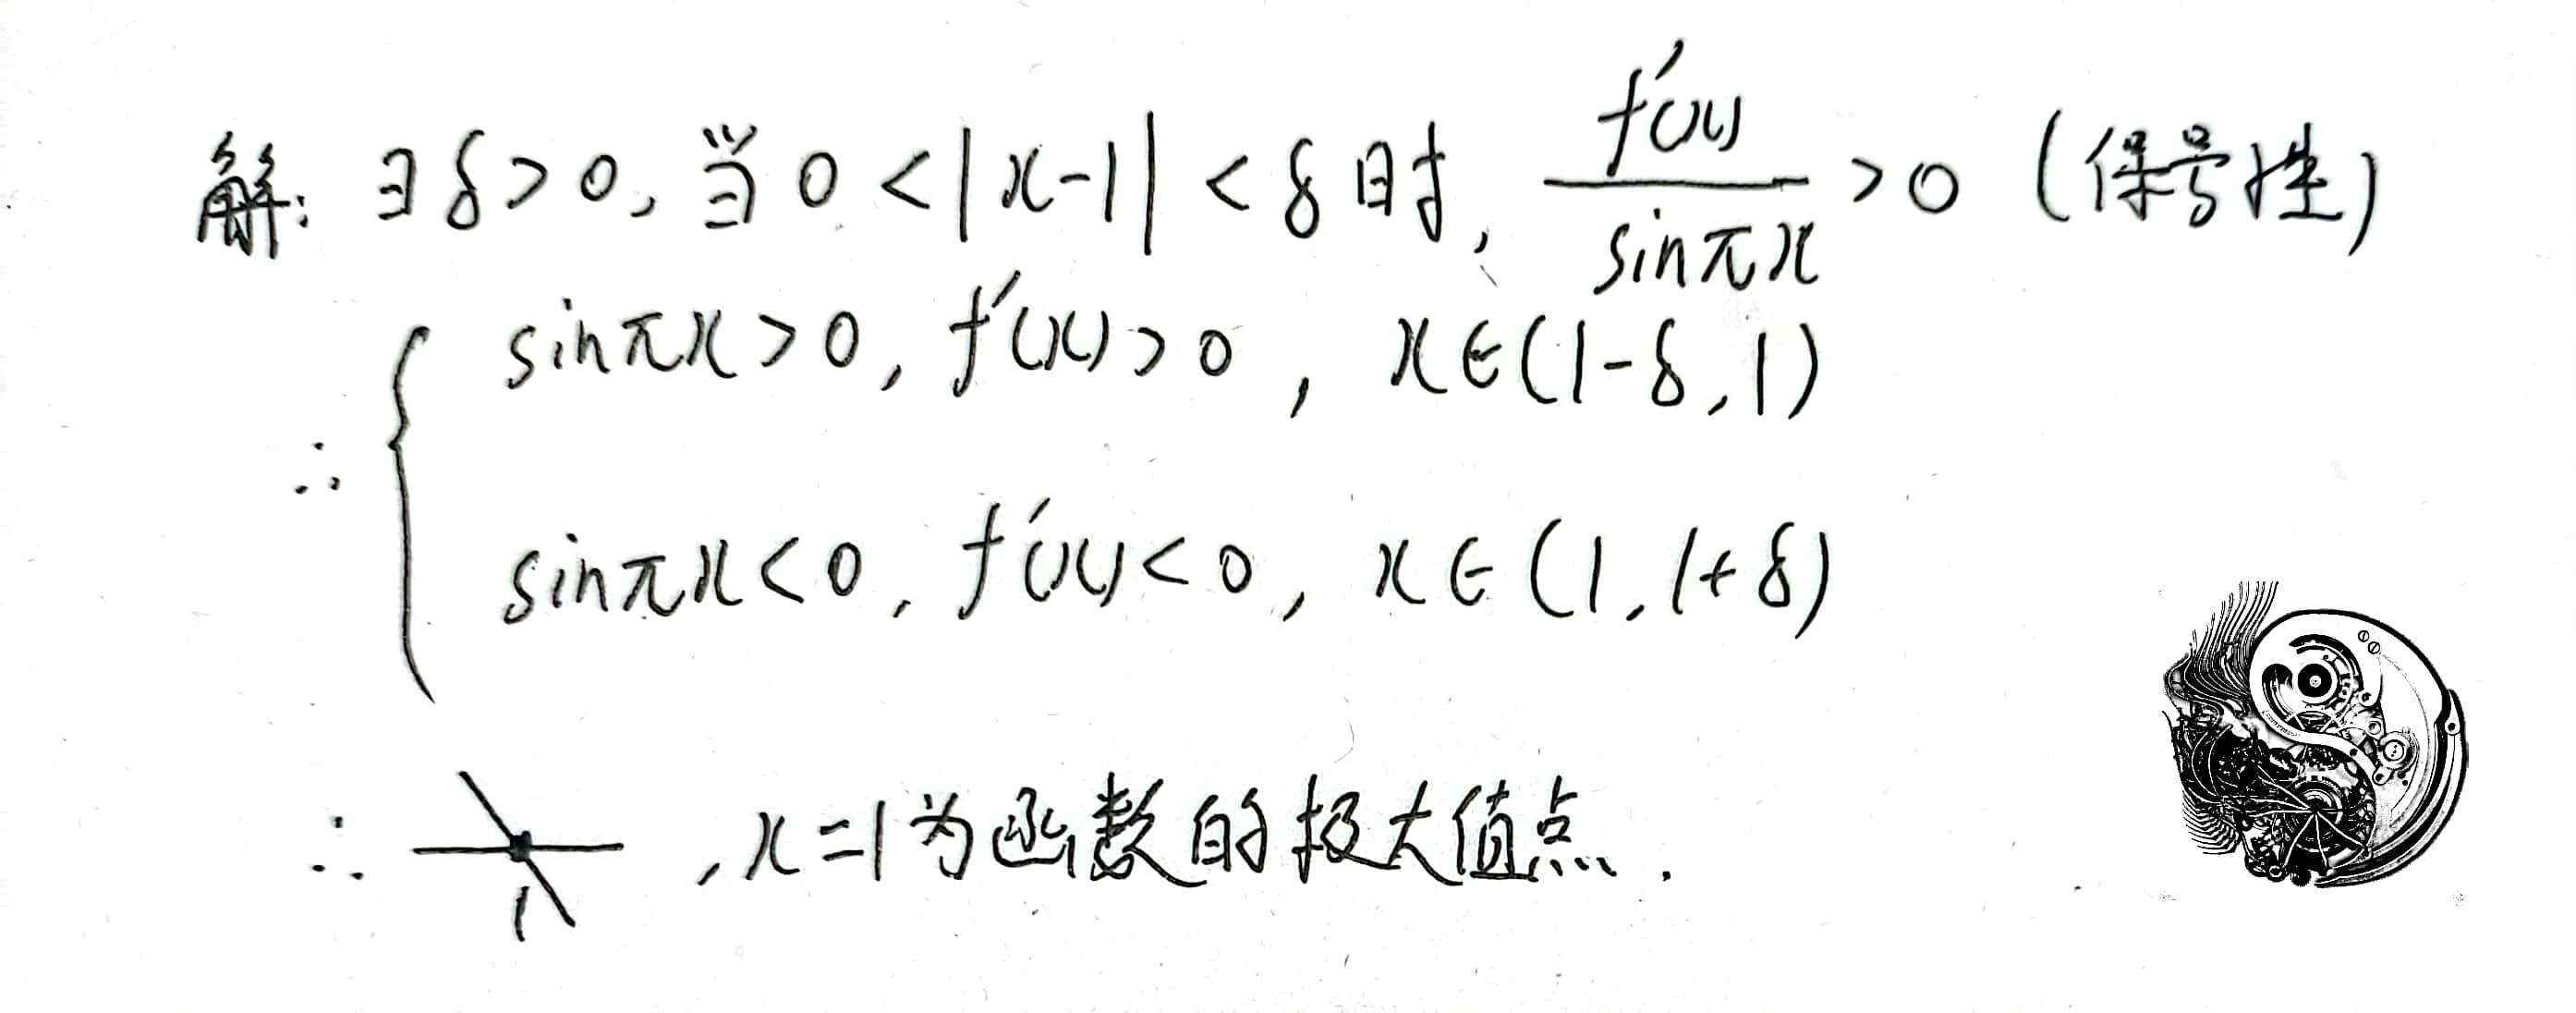 解: ∃δ>0, 当 0<|x-1|<δ时, f'(x)/sinπx >0 (保号性)
∴ { sinπx>0, f'(x)>0, x∈(1-δ,1)
sinπx<0, f'(x)<0, x∈(1,1+δ)
∴ 1 , x=1为函数的极大值点.